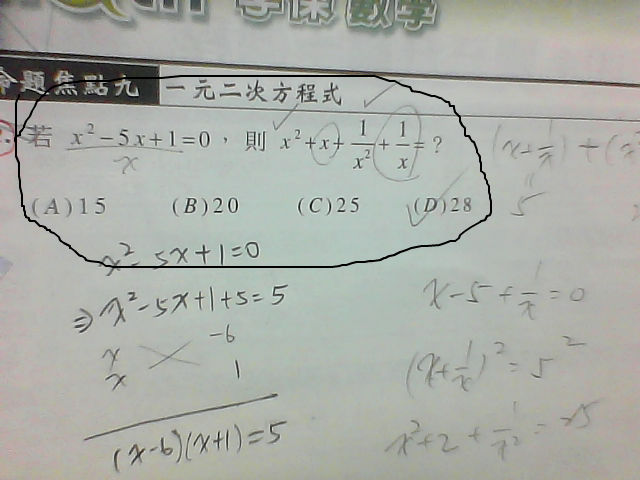 學測 數學
命題焦點九 一元二次方程式
若 x²-5x+1=0，則 x²+x+1/x²+1/x=？
x
(A)15 (B)20 (C)25 (D)28
x²-5x+1=0
⇒ x²-5x+1+5=5
x -6
x 1
(x-6)(x+1)=5
(x+1/x)+(x²
5
x-5+1/x=0
(x+1/x)²=5²
x²+2+1/x²=25